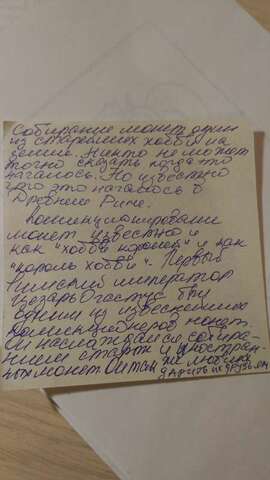 Собирание монет один
из старейших хобби на
земле. Никто не может
точно сказать когда это
началось. Но известно
что это началось в
Древнем Риме.
Коллекционирование
монет известно и
как "хобби королей" и как
"король хобби". Первый
римский император
Цезарь Огастус был
одним из известнейших
коллекционеров монет.
Он наслаждался собира-
нием старых и иностран-
ных монет Он так же любил их
дарить их друзьям